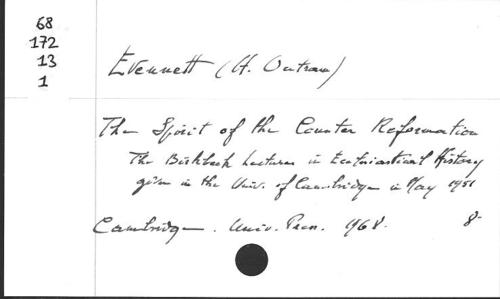 68
172
13
1
Evennett (H. Outram)
The Spirit of the Counter Reformation
The Birkbeck Lectures in Ecclesiastical History
given in the Univ. of Cambridge in May 1951
Cambridge. Univ. Press. 1968. 8-